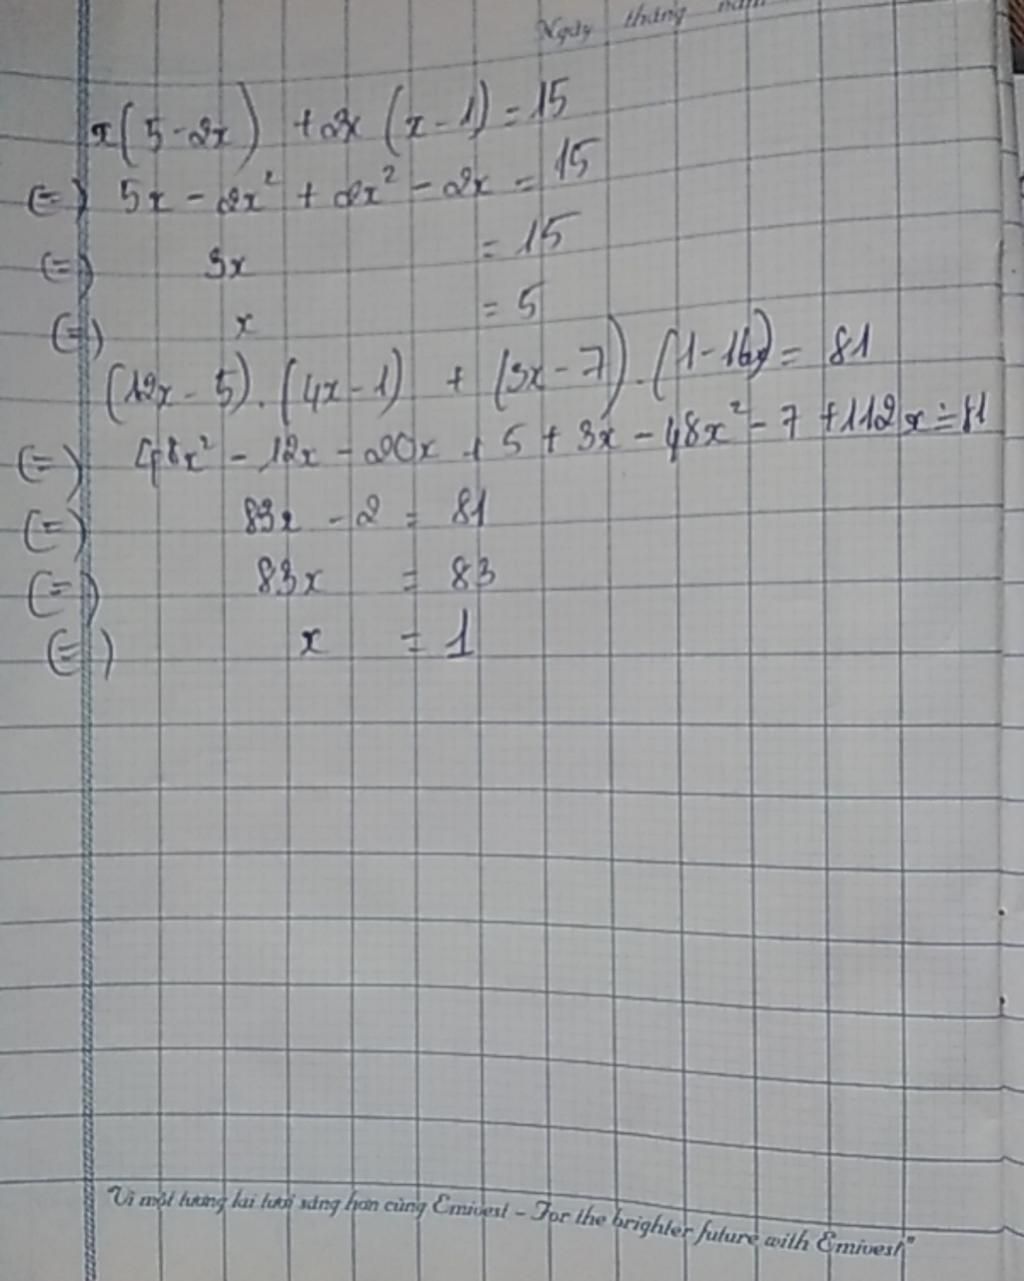 Ngày tháng năm
x(5-2x) + 2x (x-1) = 15
(=) 5x - 2x² + 2x² - 2x = 15
(=) 3x = 15
(=) x = 5
(12x - 5).(4x-1) + (3x-7).(1-16x) = 81
(=) 48x² - 12x - 20x + 5 + 3x - 48x² - 7 + 112x = 81
(=) 83x - 2 = 81
(=) 83x = 83
(=) x = 1
"Vì một tương lai tươi sáng hơn cùng Emivest - For the brighter future with Emivest"